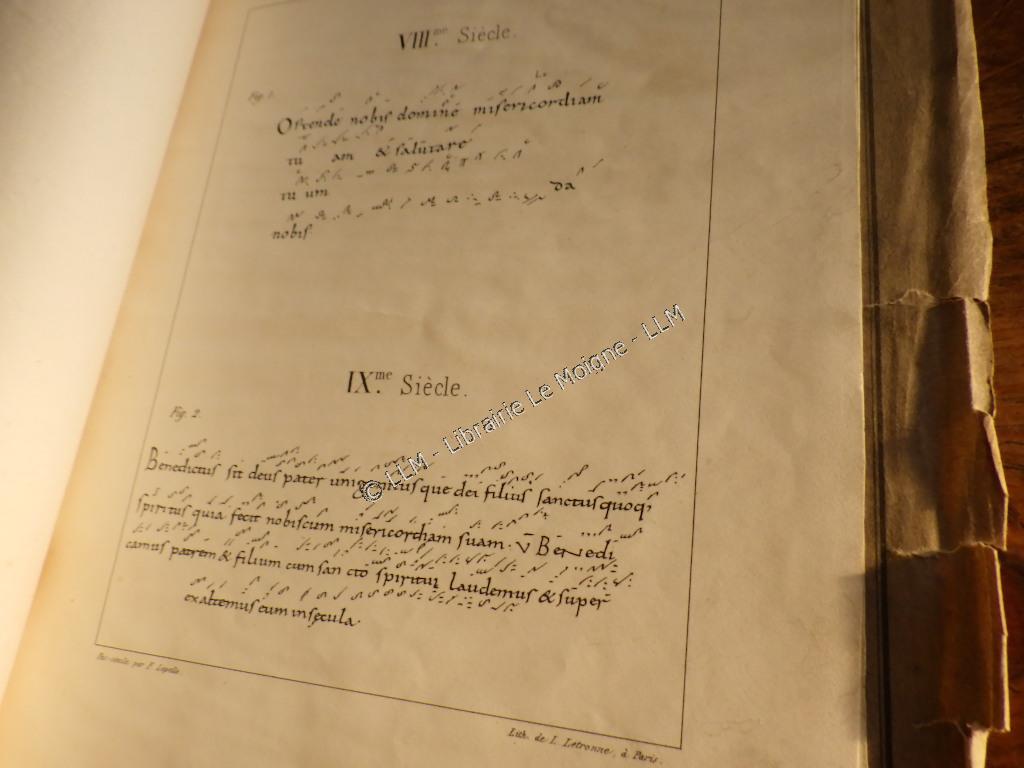 VIII.me Siècle.
Fig. 1.
Ostende nobis domine misericordiam
tu am & salutare
tu um da
nobis
IX.me Siècle.
Fig. 2.
Benedictus sit deus pater unigenitus que dei filius sanctus quoq;
spiritus quia fecit nobiscum misericordiam suam. V Benedi
camus patrem & filium cum san cto spiritui laudemus & super
exaltemus eum insecula
Fac-simile par
Lith. de L. Letronne, à Paris.
© LLM - Librairie Le Moigne - LLM